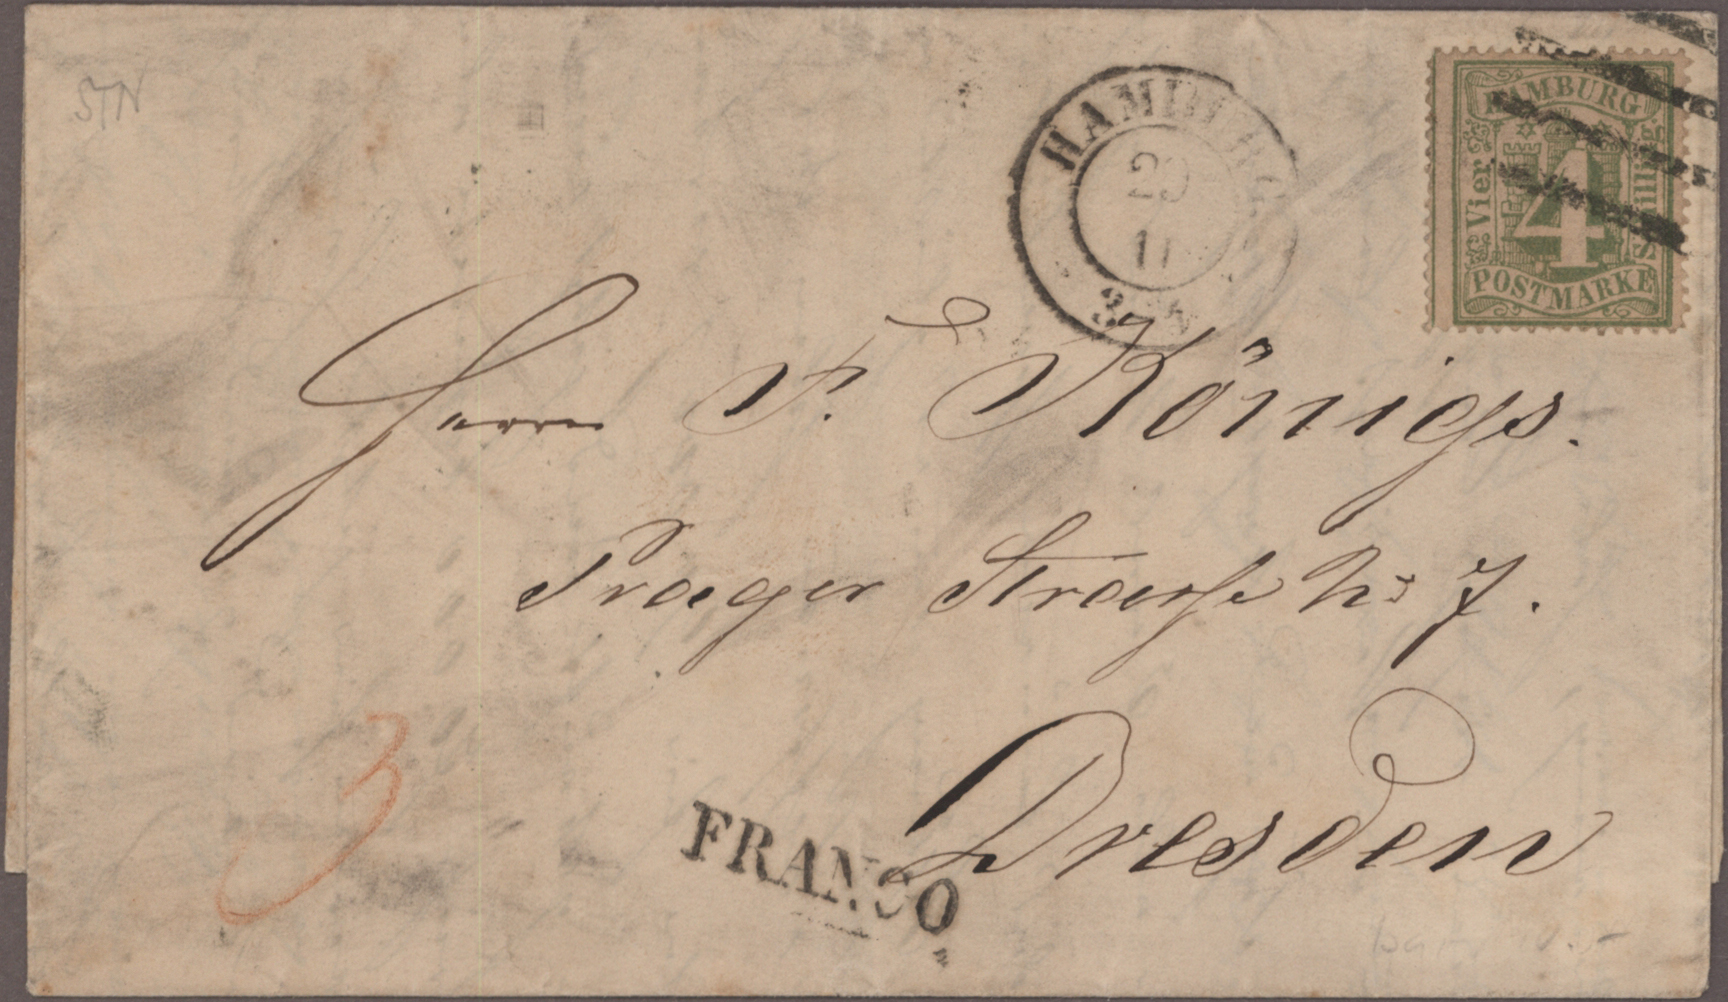 STN
HAMBURG
29
11
HAMBURG
Vier
4
Schilling
POSTMARKE
Herrn F. Königs.
Prager Strasse No 7.
Dresden
3
FRANCO